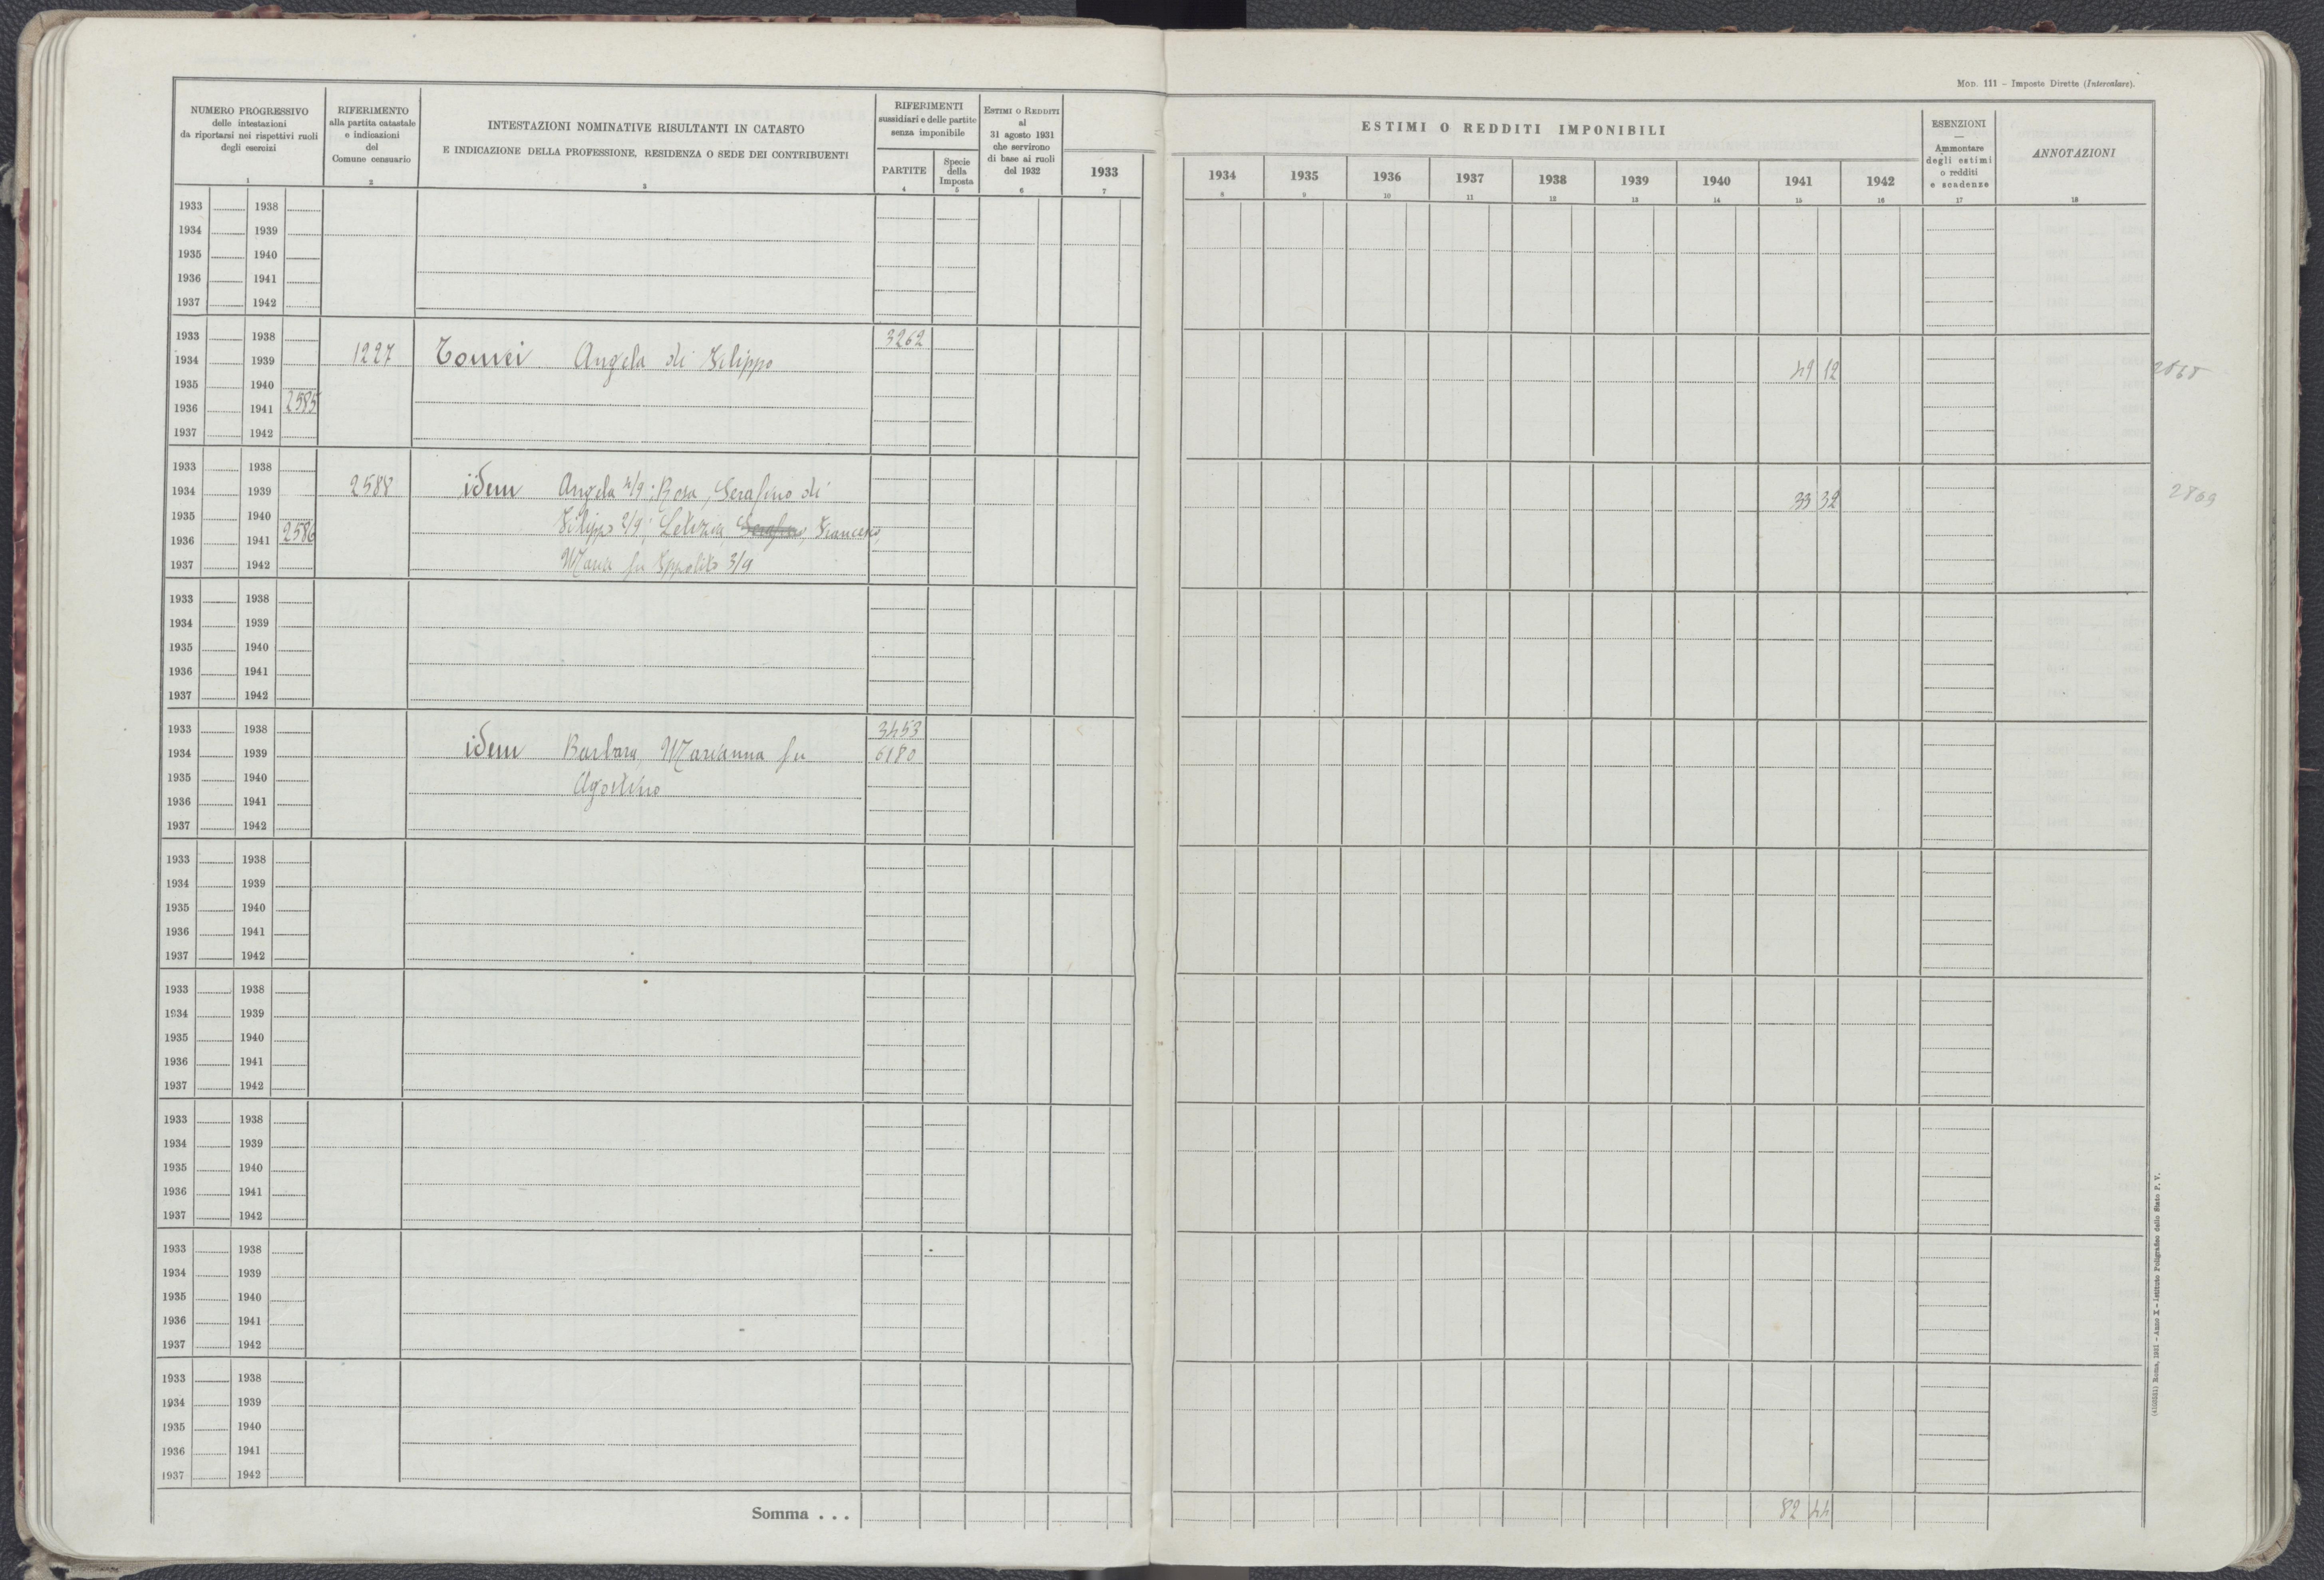 MOD. 111 – Imposte Dirette (Intercalare).
NUMERO PROGRESSIVO
delle intestazioni
da riportarsi nei rispettivi ruoli
degli esercizi
1
RIFERIMENTO
alla partita catastale
e indicazioni
del
Comune censuario
2
INTESTAZIONI NOMINATIVE RISULTANTI IN CATASTO
E INDICAZIONE DELLA PROFESSIONE, RESIDENZA O SEDE DEI CONTRIBUENTI
3
RIFERIMENTI
sussidiari e delle partite
senza imponibile
PARTITE
4
Specie
della
Imposta
5
ESTIMI O REDDITI
al
31 agosto 1931
che servirono
di base ai ruoli
del 1932
6
1933
7
ESTIMI O REDDITI IMPONIBILI
1934 1935 1936 1937 1938 1939 1940 1941 1942
8 9 10 11 12 13 14 15 16
ESENZIONI
—
Ammontare
degli estimi
o redditi
e scadenze
17
ANNOTAZIONI
18
1933 1938
1934 1939
1935 1940
1936 1941
1937 1942
1933 1938 3262
1934 1939 1227 Angela di Filippo 49 12
1935 1940
1936 1941 2585
1937 1942
1933 1938
1934 1939 2588 idem Angela 4/9; Rosa, Serafino di 33 32 2869
1935 1940 Filippo 2/9; Letizia, Serafino, Francesco,
1936 1941 2586
1937 1942 Maria fu Ippolito 3/9
1933 1938
1934 1939
1935 1940
1936 1941
1937 1942
1933 1938 3453
1934 1939 idem Barbara, Marianna fu 6180
1935 1940 Agostino
1936 1941
1937 1942
1933 1938
1934 1939
1935 1940
1936 1941
1937 1942
1933 1938
1934 1939
1935 1940
1936 1941
1937 1942
1933 1938
1934 1939
1935 1940
1936 1941
1937 1942
1933 1938
1934 1939
1935 1940
1936 1941
1937 1942
1933 1938
1934 1939
1935 1940
1936 1941
1937 1942
Somma . . . 82 44
Roma, 1931 – Anno X – Istituto Poligrafico dello Stato P. V.